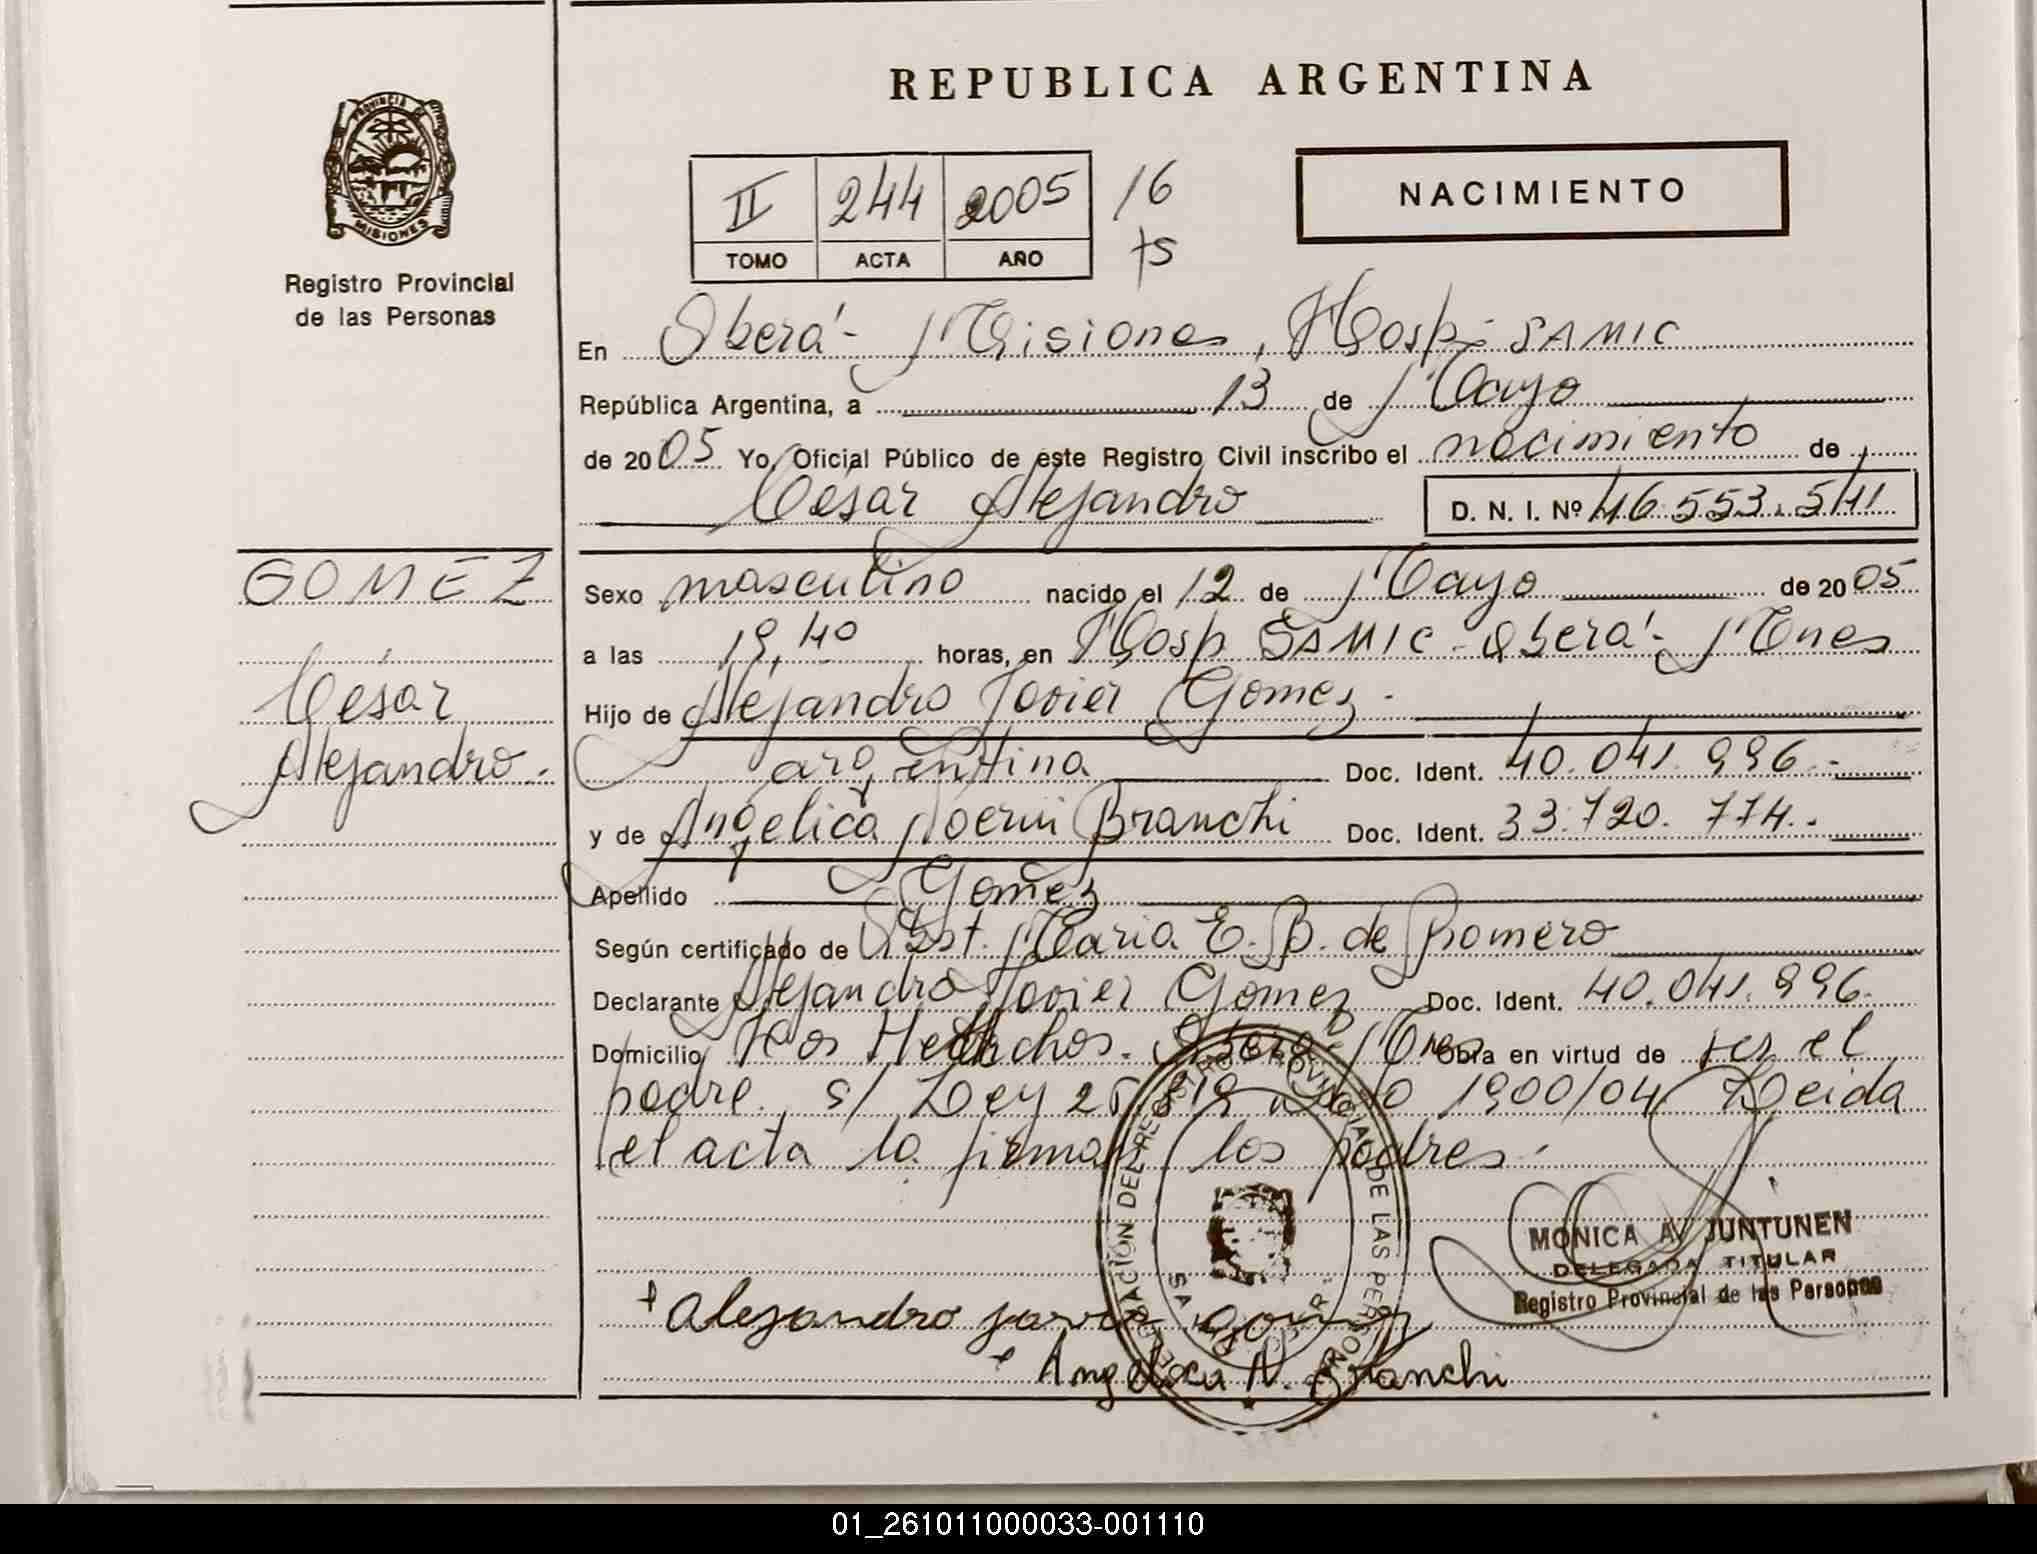 REPUBLICA ARGENTINA
PROVINCIA DE
MISIONES
Registro Provincial
de las Personas
II 244 2005 16
TOMO ACTA AÑO ts
NACIMIENTO
En Oberá - Misiones, Hosp - SAMIC
República Argentina, a 13 de Mayo
de 2005 Yo, Oficial Público de este Registro Civil inscribo el nacimiento de
César Alejandro D. N. I. Nº 46.553.541
GOMEZ
César
Alejandro.
Sexo masculino nacido el 12 de Mayo de 2005
a las 19,40 horas, en Hosp SAMIC - Oberá - Mnes
Hijo de Alejandro Javier Gomez.
argentina Doc. Ident. 40.041.996.-
y de Angélica Noemi Branchi Doc. Ident. 33.720.774.-
Apellido Gomez
Según certificado de Obst. Maria E. B. de Romero
Declarante Alejandro Javier Gomez Doc. Ident. 40.041.996.
Domicilio Obra en virtud de ser el
padre, s/ Ley 25.819 1900/04 Leida
el acta la firman los padres.
DELEGACIÓN DEL REGISTRO PROVINCIAL DE LAS PERSONAS
MONICA A. JUNTUNEN
DELEGADA TITULAR
Registro Provincial de las Personas
+ alejandro javier gomez
+ Angelica N. Branchi
01_261011000033-001110